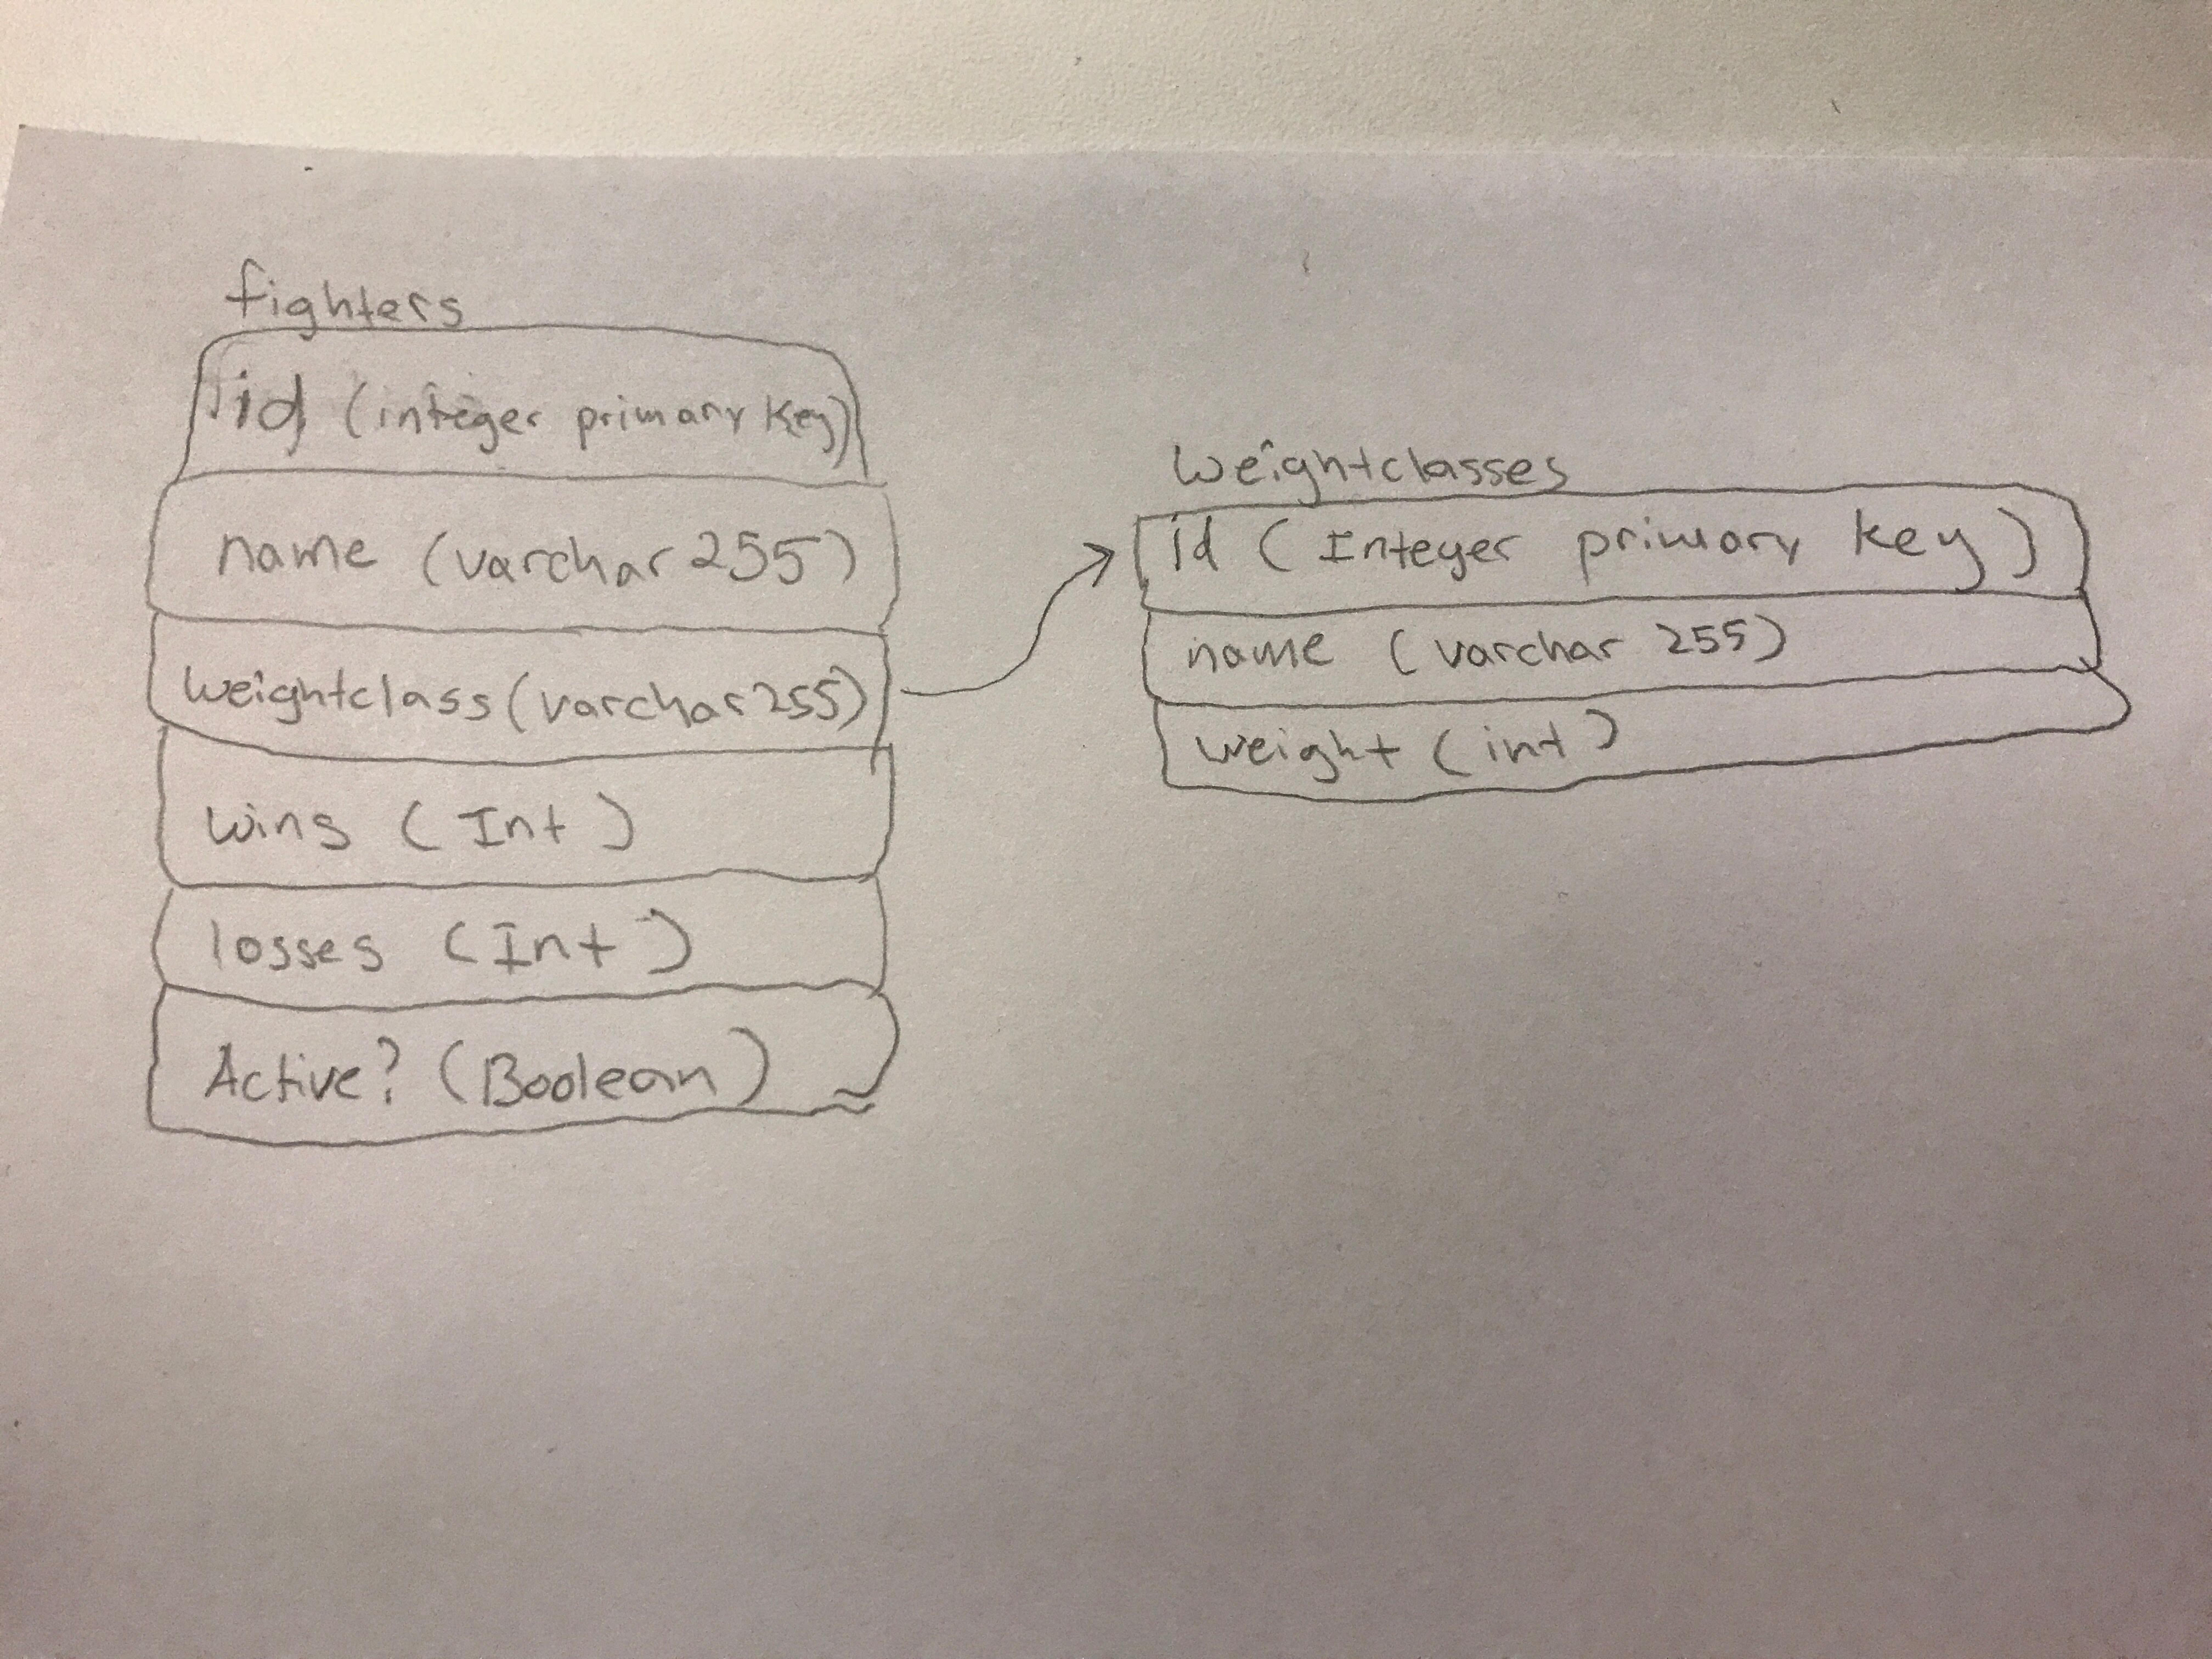 fighters
id (integer primary key)
name (varchar 255)
weightclass (varchar 255)
wins (Int)
losses (Int)
Active? (Boolean)
weightclasses
id (Integer primary key)
name (varchar 255)
weight (int)